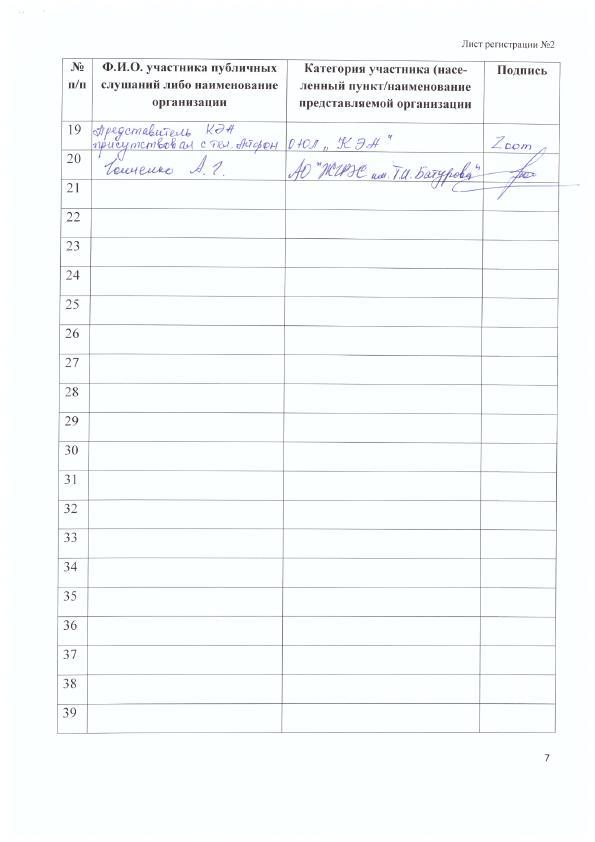 Лист регистрации №2
№ п/п
Ф.И.О. участника публичных слушаний либо наименование организации
Категория участника (насе-
ленный пункт/наименование
представляемой организации
Подпись
19 Представитель КЭА
присутствовал с тел. ОЮЛ „КЭА" Zoom
20 А. Г. АО "ЖГРЭС им. Т.И. Батурова"
21
22
23
24
25
26
27
28
29
30
31
32
33
34
35
36
37
38
39
7